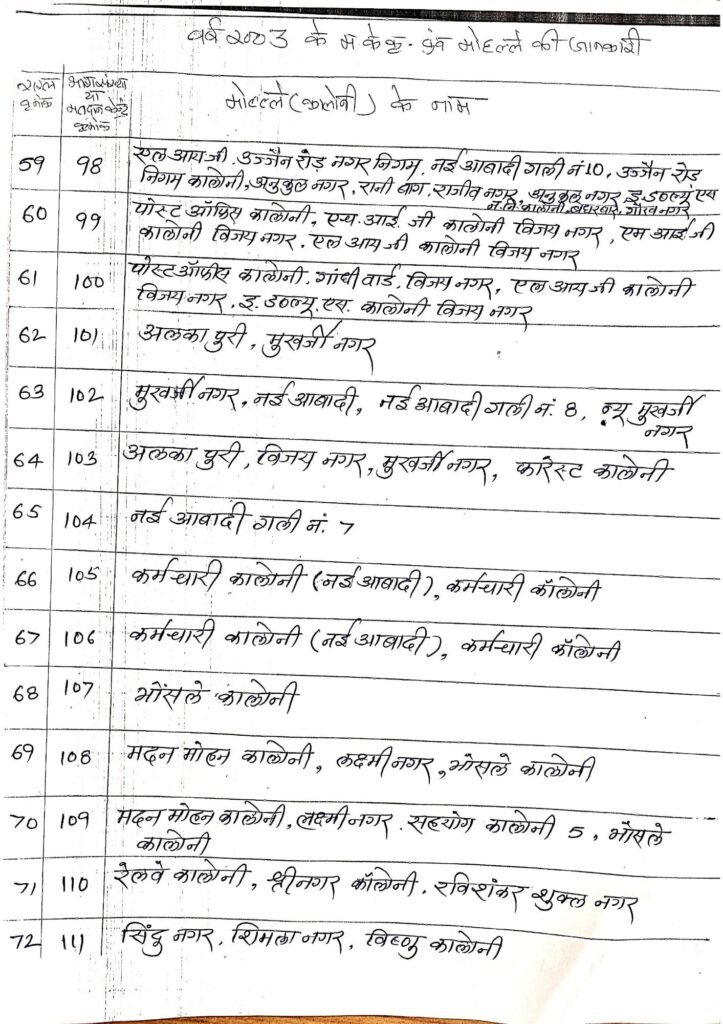 वर्ष 2003 के म.के.क्र. एवं मोहल्ले की जानकारी
सरल क्रमांक
भाग संख्या या मतदान केन्द्र क्रमांक
मोहल्ले (कालोनी) के नाम
59 98 एल आय जी उज्जैन रोड़ नगर निगम, नई आबादी गली नं 10, उज्जैन रोड़
निगम कालोनी, अनुकुल नगर, रानी बाग, राजीव नगर, अनुकुल नगर इ.डब्ल्यू एस
न.नि. कालोनी, गौरव नगर
60 99 पोस्ट ऑफिस कालोनी, एच. आई. जी कालोनी विजय नगर, एम आई जी
कालोनी विजय नगर. एल आय जी कालोनी विजय नगर
61 100 पोस्ट ऑफीस कालोनी. गांधी वार्ड, विजय नगर, एल आय जी कालोनी
विजय नगर. इ. डब्ल्यू. एस. कालोनी विजय नगर
62 101 अलका पुरी, मुखर्जी नगर
63 102 मुखर्जी नगर, नई आबादी, नई आबादी गली नं. 8, न्यू मुखर्जी
नगर
64 103 अलका पुरी, विजय नगर, मुखर्जी नगर, फारेस्ट कालोनी
65 104 नई आबादी गली नं. 7
66 105 कर्मचारी कालोनी (नई आबादी), कर्मचारी कॉलोनी
67 106 कर्मचारी कालोनी (नई आबादी), कर्मचारी कॉलोनी
68 107 भोंसले कालोनी
69 108 मदन मोहन कालोनी, लक्ष्मी नगर, भोसले कालोनी
70 109 मदन मोहन कालोनी, लक्ष्मी नगर. सहयोग कालोनी 5, भोंसले
कालोनी
71 110 रेलवे कालोनी, श्रीनगर कॉलोनी. रविशंकर शुक्ल नगर
72 111 सिंदु नगर, शिमला नगर, विष्णु कालोनी